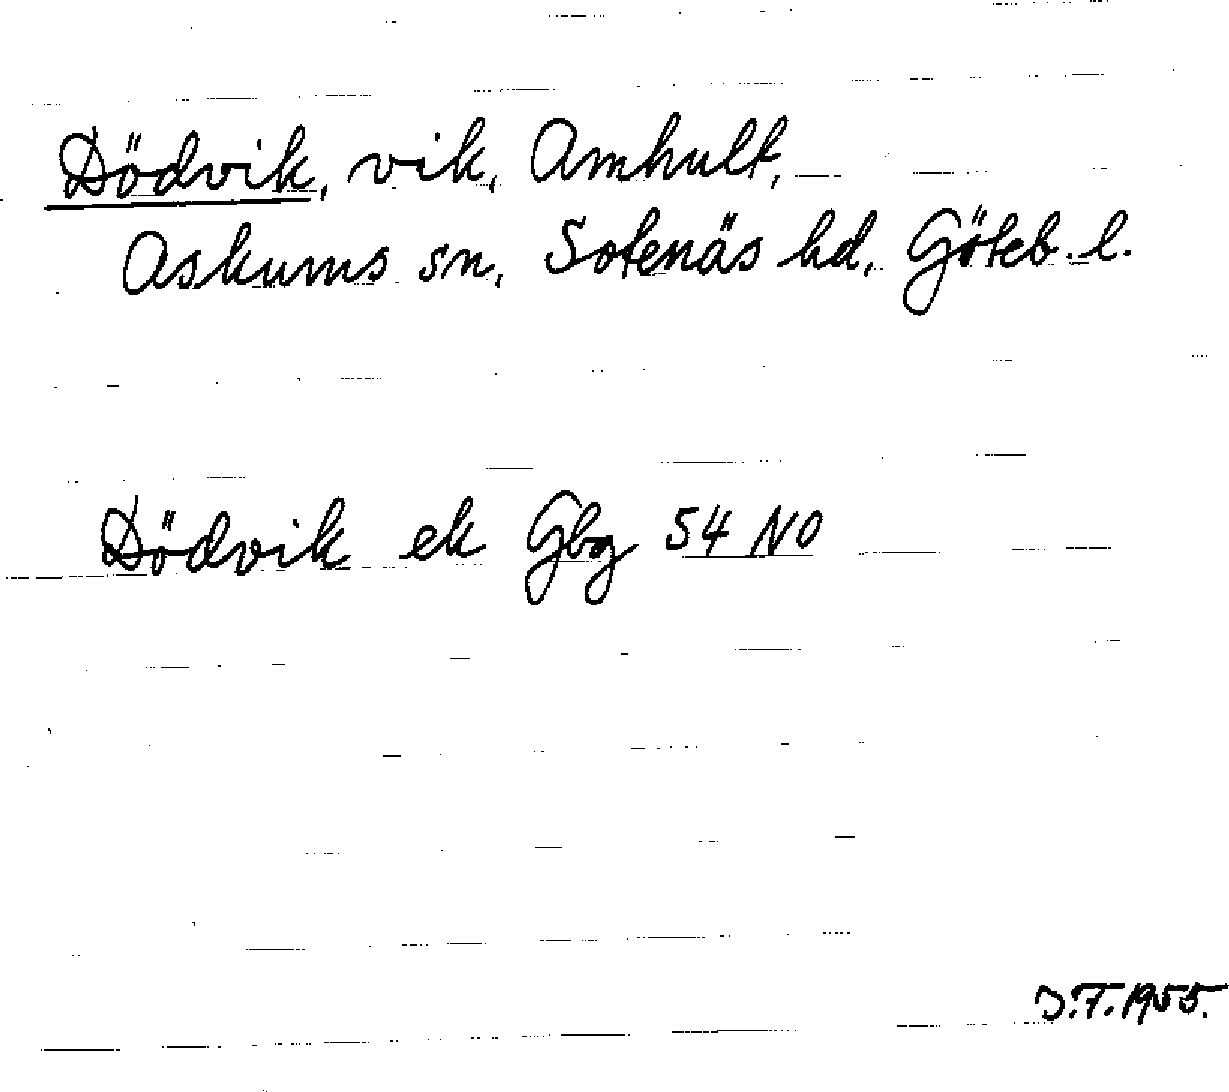 Dödvik, vik, Amhult,
Askums sn, Sotenäs hd, Göteb. l.
Dödvik ek Gbg 54 NO
D.F. 1955.